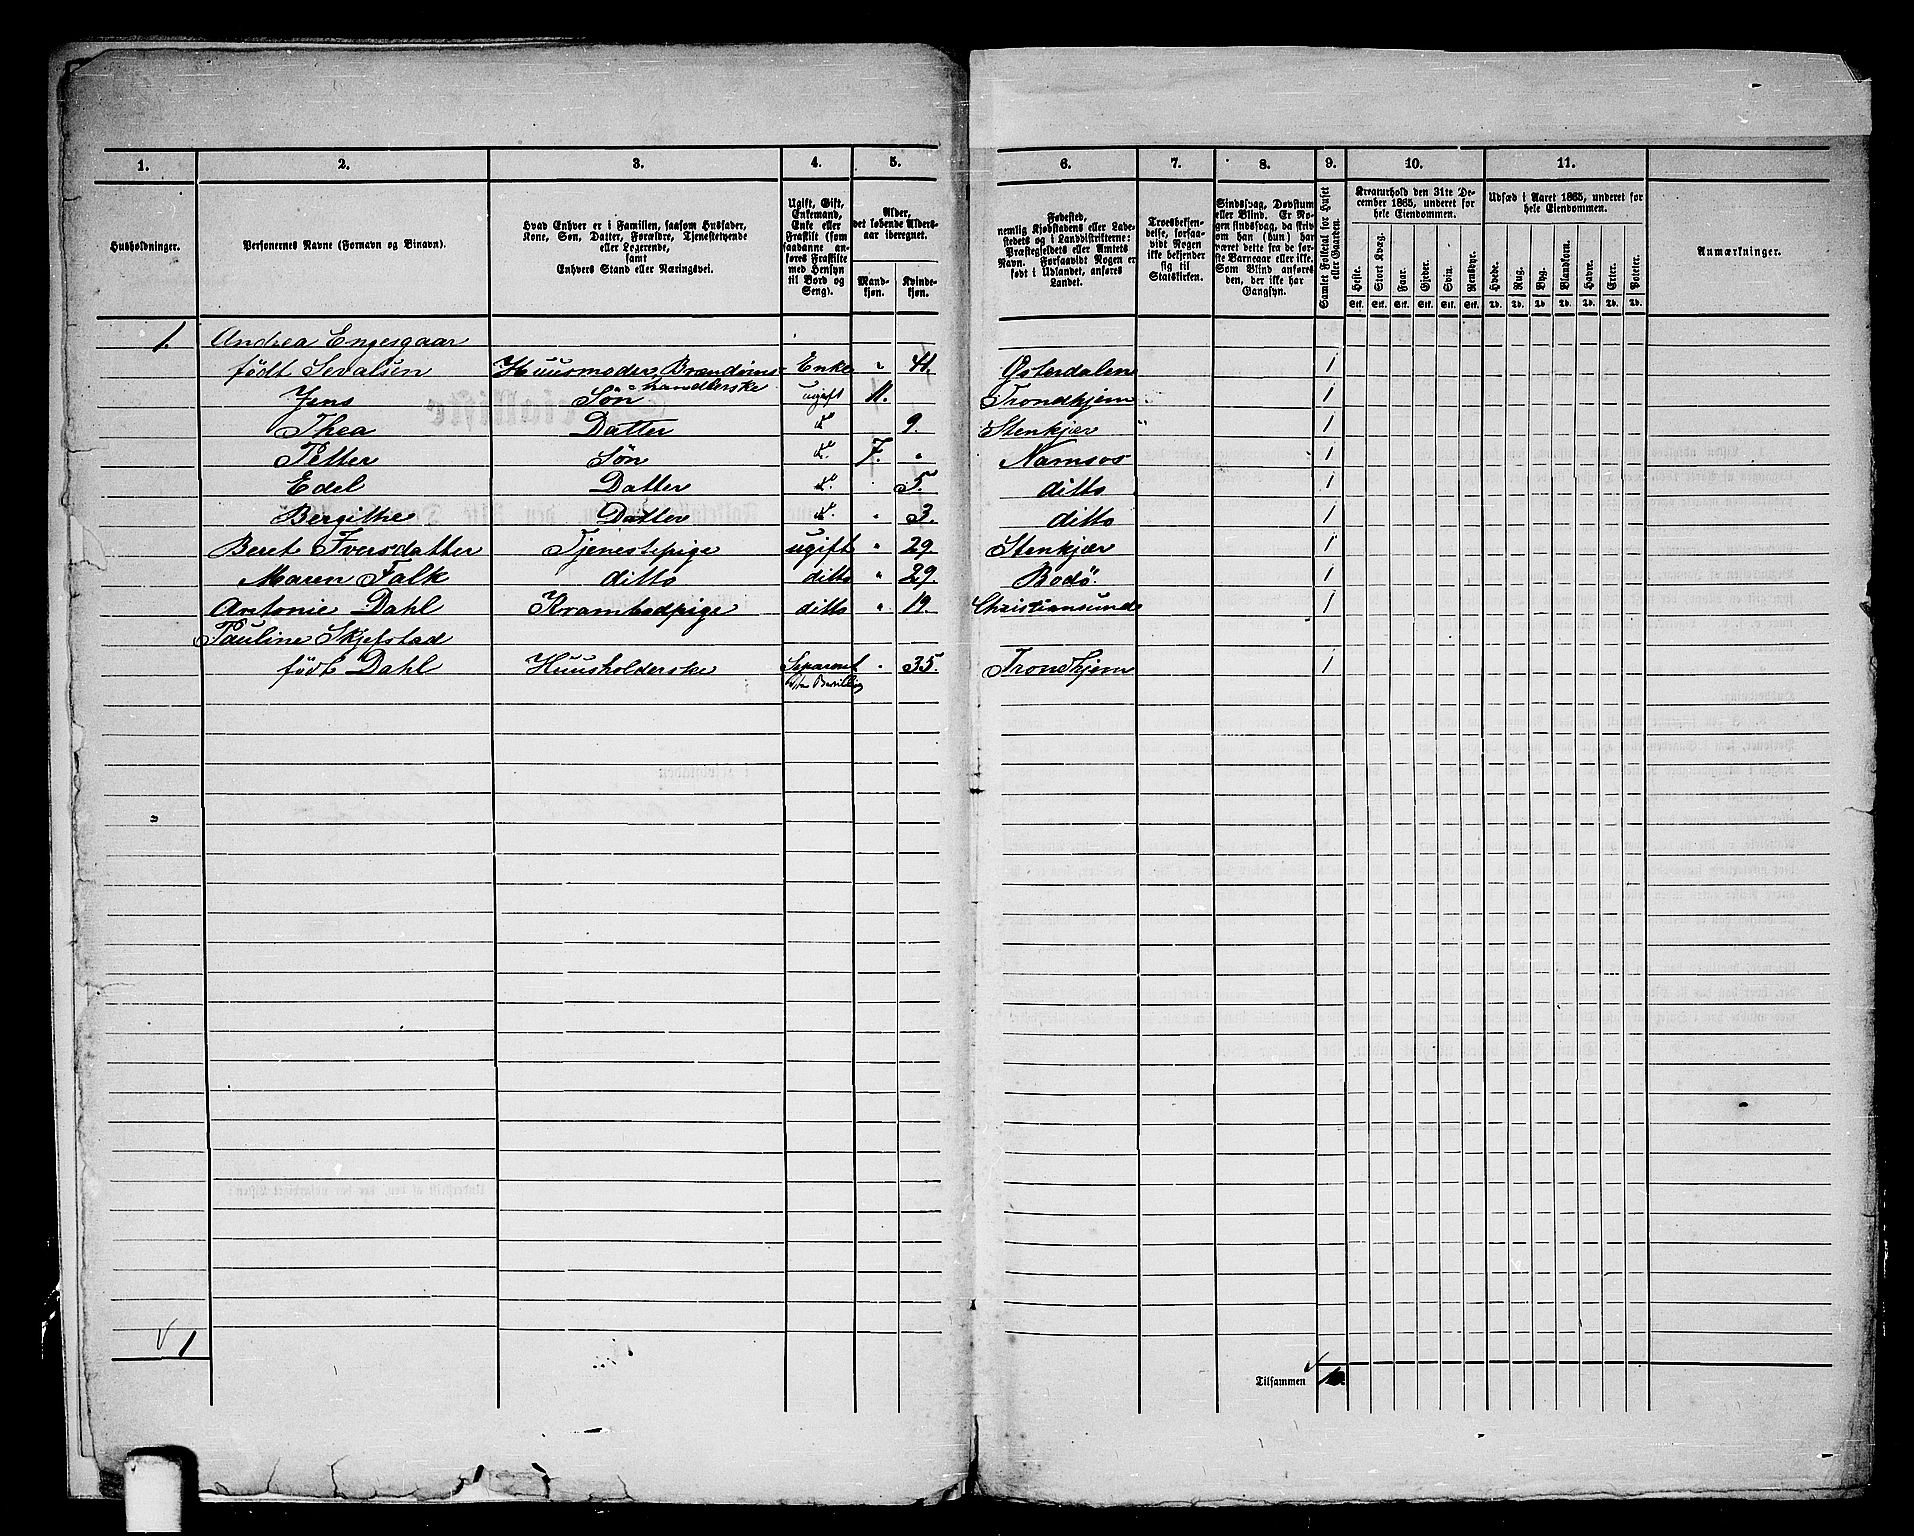 1. 2. 3. 4. 5. 6. 7. 8. 9. 10. 11.
Husholdninger.
Personernes Navne (Fornavn og Binavn).
Hvad Enhver er i Familien, saasom Husfader,
Kone, Søn, Datter, Forældre, Tjenestetyende
eller Logerende,
samt
Enhvers Stand eller Næringsvei.
Ugift, Gift,
Enkemand,
Enke eller
Fraskilt (som
saadanne an-
føres Fraskilte
med Hensyn
til Bord og
Seng).
Alder,
det løbende Alders-
aar iberegnet.
Mand-
kjøn.
Kvinde-
kjøn.
Fødested,
nemlig Kjøbstadens eller Lade-
stedets og i Landdistrikterne:
Præstegjeldets eller Amtets
Navn. Forsaavidt Nogen er
født i Udlandet, anføres
Landet.
Troesbekjen-
delse, forsaa-
vidt Nogen
ikke bekjender
sig til
Statskirken.
Sindssvag, Døvstum
eller Blind. Er No-
gen sindssvag, da skriv
om han (hun) har
været dette fra de før-
ste Barneaar eller ikke.
Som Blind anføres
den, der ikke har
Gangsyn.
Samlet Folketal for Huset
eller Gaarden.
Kreaturhold den 31te De-
cember 1865, underet for
hele Eiendommen.
Heste. Stort Kvæg. Faar. Gjeder. Svin. Rensdyr.
Stk. Stk. Stk. Stk. Stk. Stk.
Udsæd i Aaret 1865, underet for
hele Eiendommen.
Hvede. Rug. Byg. Blandkorn. Havre. Erter. Poteter.
Td. Td. Td. Td. Td. Td. Td.
Anmærkninger.
1. Andrea Engesgaar
født Sevalsen Huusmoder, Brændeviins- Enke " 41. Østerdalen 1
=handlerske
Jens Søn ugift 11. Trondhjem 1
Thea Datter d° 9. Stenkjær " 1
Petter Søn d° 7. " Namsos 1
Edel Datter d° 5. ditto 1
Bergithe Datter d° " 3. ditto 1
Beret Iversdatter Tjenestepige ugift " 29. Stenkjær 1
Maren Falk ditto ditto " 29. Bodö. 1
Antonie Dahl Krambodpige ditto " 19. Christiansund 1
Pauline Skjefstad
født Dahl Huusholderske Separeret " 35. Trondhjem 1
1
Tilsammen 10.